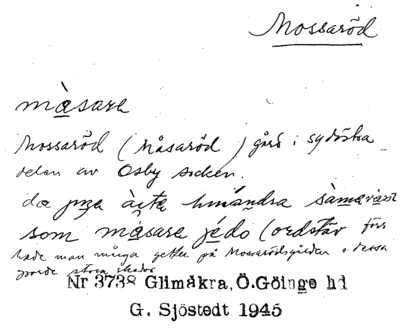 Mossaröd
måsare
Mossaröd (Måsaröd) gård i sydöstra
delen av Osby socken.
da
som måsare jédo (ordstäv förr
hade man många getter på Mossarödsgården o dessa
gjorde stora skador
Nr 3738 Glimåkra, Ö.Göinge hd
G. Sjöstedt 1945